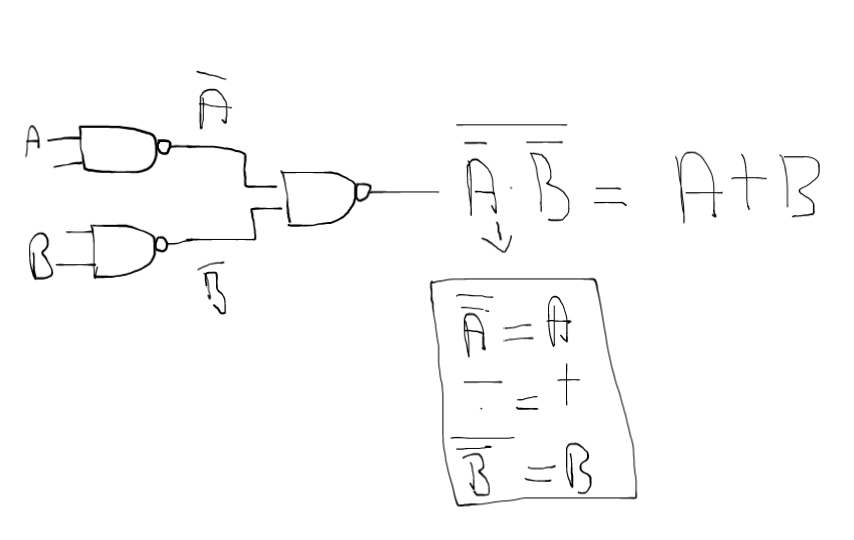 A̅
A
A̅ · B̅ = A + B
B
B̅
A̿ = A
·̅ = +
B̿ = B